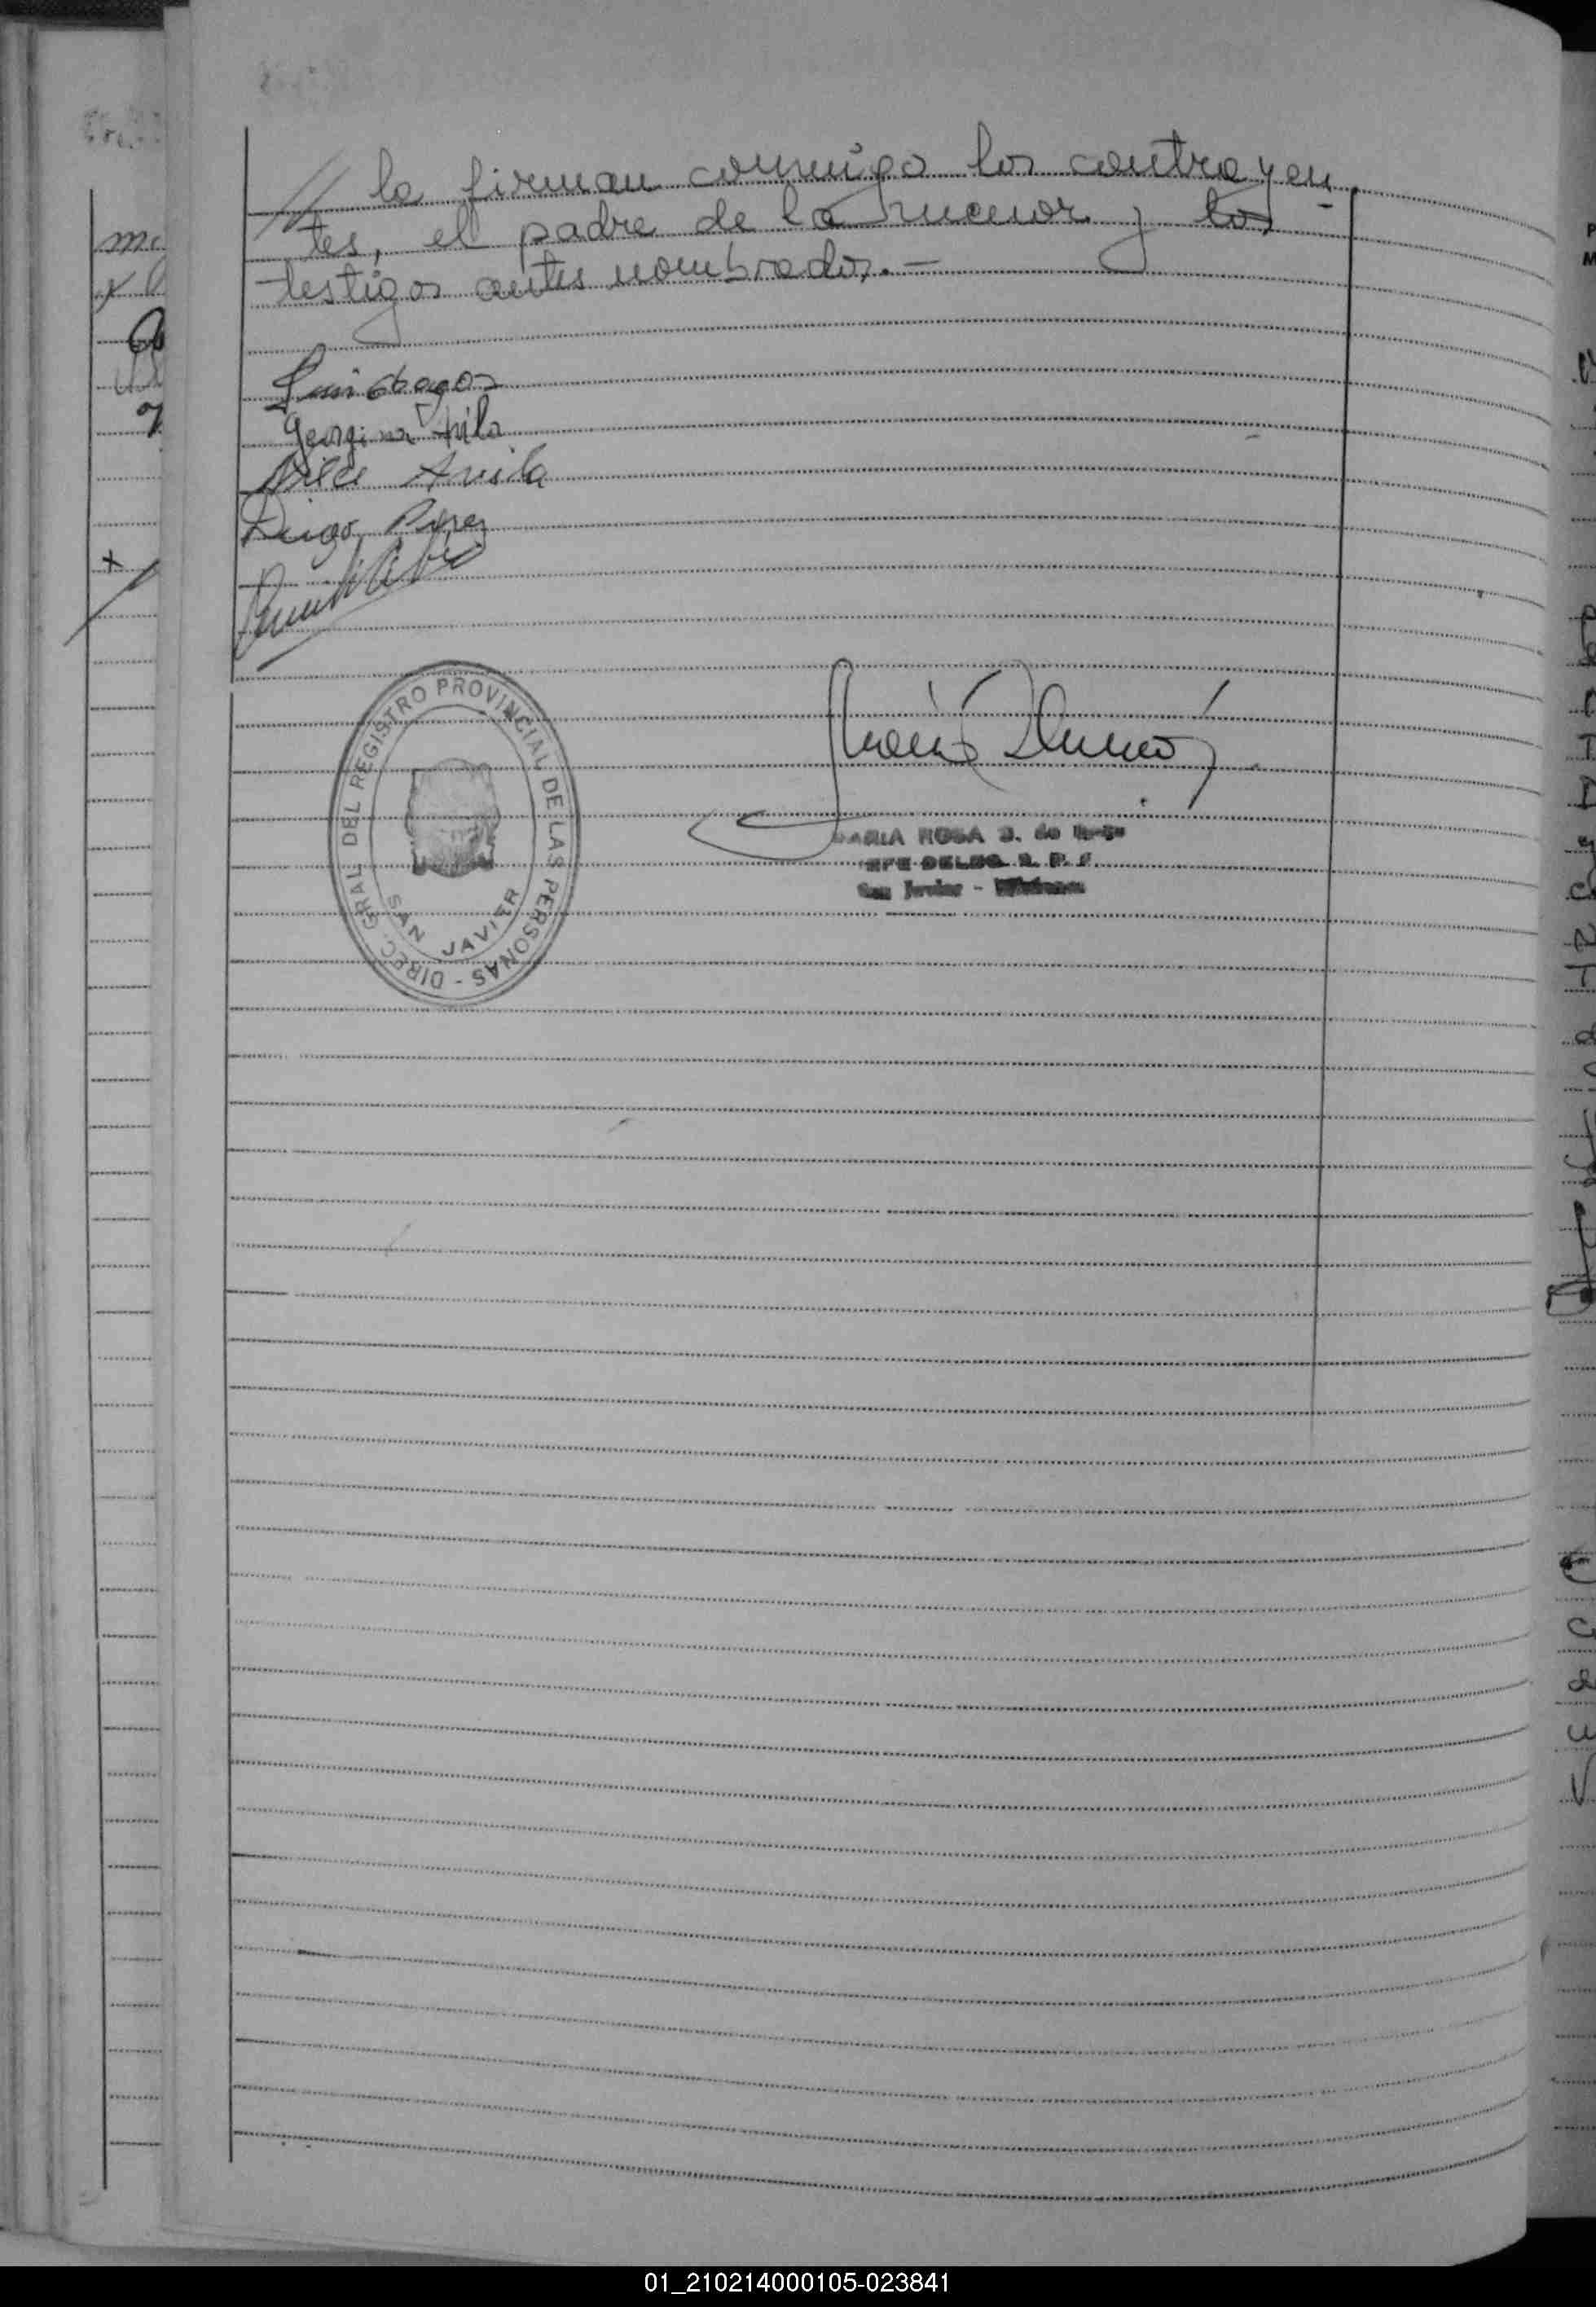 // la firman conmigo los contrayen-
tes, el padre de la menor y los
testigos antes nombrados.-
Luis
Georgina Avila
Avila
Hugo
DIREC. GRAL. DEL REGISTRO PROVINCIAL DE LAS PERSONAS -
SAN JAVIER
MARIA ROSA D. de
JEFE DELEG. R. P. P.
San Javier - Misiones
01_210214000105-023841